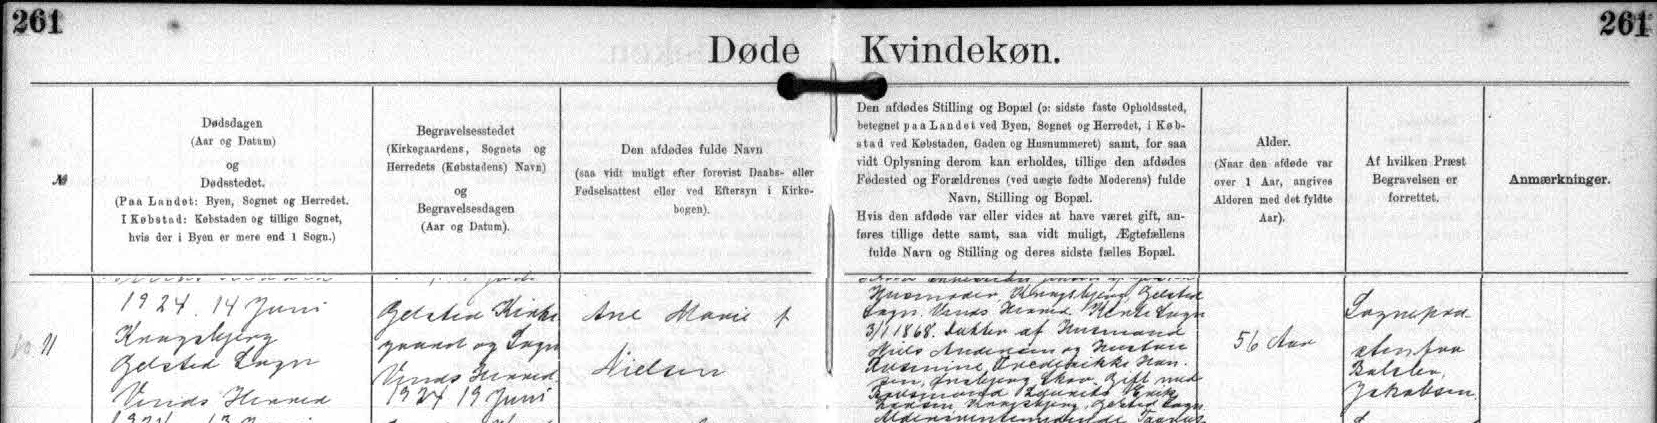 261
261
Døde Kvindekøn.
№
Dødsdagen
(Aar og Datum)
og
Dødsstedet.
(Paa Landet: Byen, Sognet og Herredet.
I Købstad: Købstaden og tillige Sognet,
hvis der i Byen er mere end 1 Sogn.)
Begravelsesstedet
(Kirkegaardens, Sognets og
Herredets (Købstadens) Navn)
og
Begravelsesdagen
(Aar og Datum).
Den afdødes fulde Navn
(saa vidt muligt efter forevist Daabs- eller
Fødselsattest eller ved Eftersyn i Kirke-
bogen).
Den afdødes Stilling og Bopæl (ɔ: sidste faste Opholdssted,
betegnet paa Landet ved Byen, Sognet og Herredet, i Køb-
stad ved Købstaden, Gaden og Husnummeret) samt, for saa
vidt Oplysning derom kan erholdes, tillige den afdødes
Fødested og Forældrenes (ved uægte fødte Moderens) fulde
Navn, Stilling og Bopæl.
Hvis den afdøde var eller vides at have været gift, an-
føres tillige dette samt, saa vidt muligt, Ægtefællens
fulde Navn og Stilling og deres sidste fælles Bopæl.
Alder.
(Naar den afdøde var
over 1 Aar, angives
Alderen med det fyldte
Aar).
Af hvilken Præst
Begravelsen er
forrettet.
Anmærkninger.
11
1924. 14 Juni
Kragsbjerg
Gelsted Sogn
Vends Herred
Gelsted Kirke
gaard og Sogn
Vends Herred.
1924 19 Juni
Ane Marie f
Nielsen
Husmoder, Kragsbjerg, Gelsted
Sogn. Vends Herred
3/1 1868. Datter af Husmand
Niels Andersen og Hustru
Rasmine Frederikke Han-
sen, Skov. Gift med
Husmand Laurits
Kragsbjerg, Gelsted Sogn
56 Aar
Sognepræ
sten fra
Balslev,
Jakobsen.